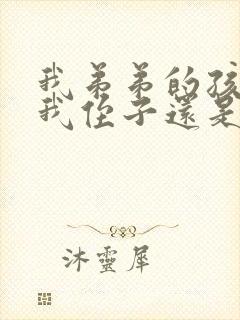 我弟弟的孩
我侄子還是
沐靈犀